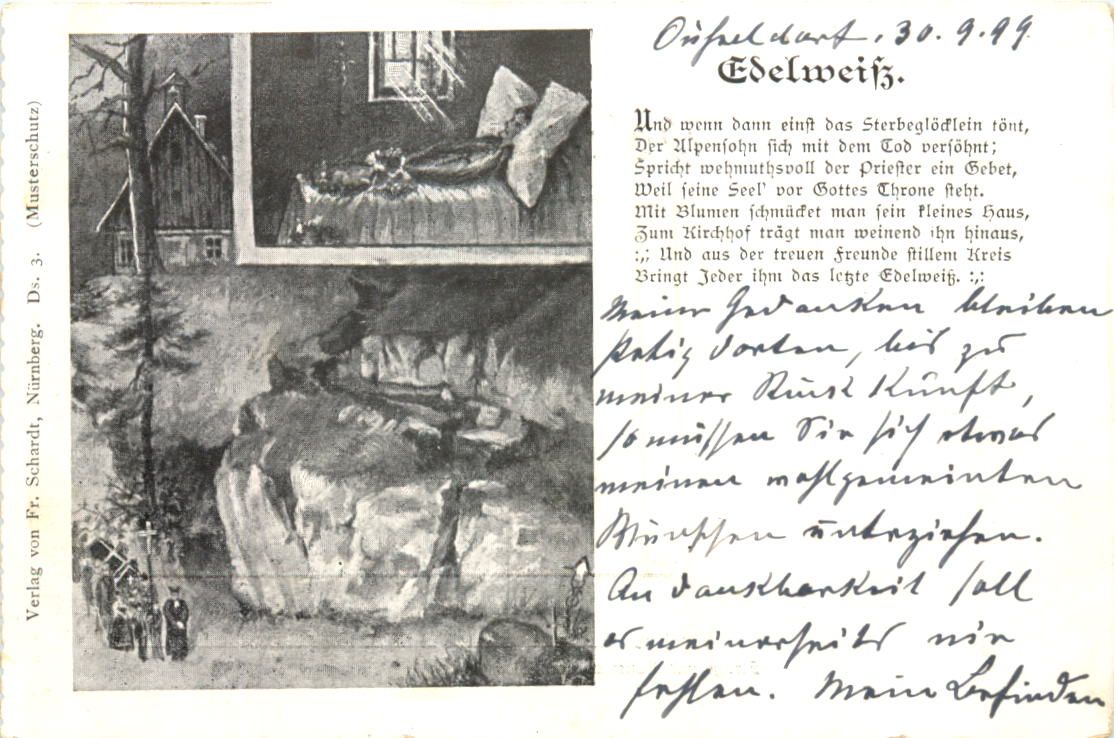 Düsseldorf, 30. 9. 99
Edelweiß.
Und wenn dann einst das Sterbeglöcklein tönt,
Der Alpensohn sich mit dem Tod versöhnt;
Spricht wehmuthsvoll der Priester ein Gebet,
Weil seine Seel' vor Gottes Throne steht.
Mit Blumen schmücket man sein kleines Haus,
Zum Kirchhof trägt man weinend ihn hinaus,
:,: Und aus der treuen Freunde stillem Kreis
Bringt Jeder ihm das letzte Edelweiß. :,:
Meine Gedanken bleiben
stetig dorten, bis zu
meiner Rückkunft,
so müssen Sie sich etwas
meinen wohlgemeinten
Wünschen unterziehen.
An Dankbarkeit soll
es meinerseits nie
fehlen. Mein Befinden
Verlag von Fr. Schardt, Nürnberg. Ds. 3. (Musterschutz)